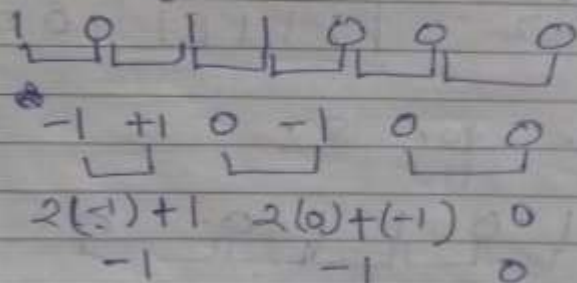 1 0 1 1 0 0 0
-1 +1 0 -1 0 0
2(-1)+1 2(0)+(-1) 0
-1 -1 0